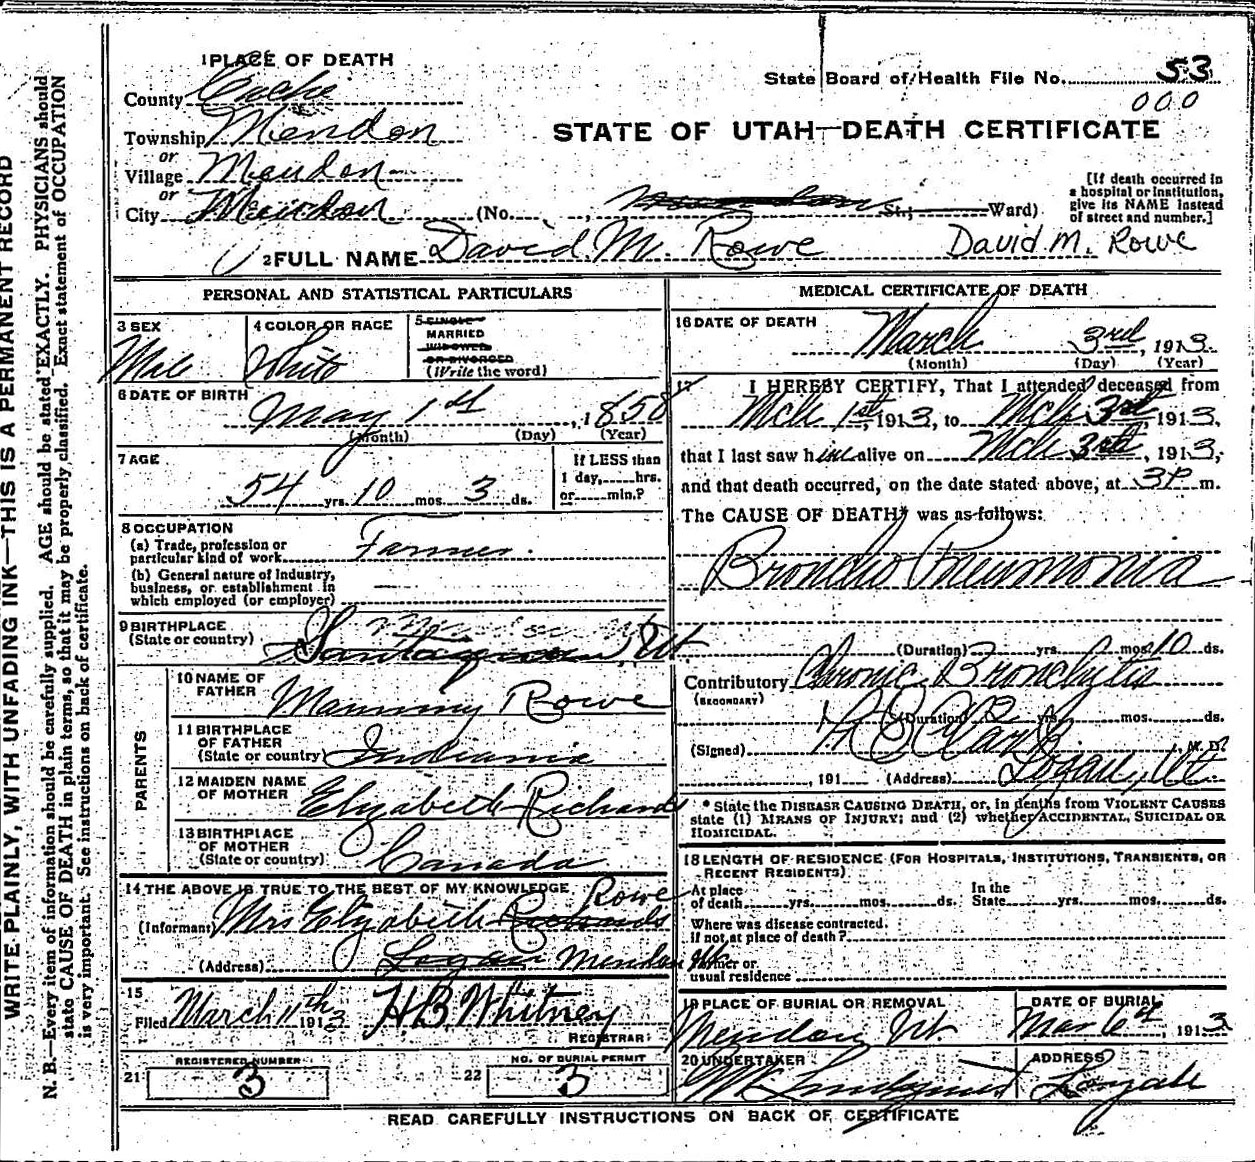 WRITE PLAINLY, WITH UNFADING INK—THIS IS A PERMANENT RECORD
N. B.—Every item of information should be carefully supplied. AGE should be stated EXACTLY. PHYSICIANS should
state CAUSE OF DEATH in plain terms, so that it may be properly classified. Exact statement of OCCUPATION
is very important. See instructions on back of certificate.
1 PLACE OF DEATH
County Cache
Township Mendon
or
Village Mendon
or
City Mendon (No. , St; Ward)
State Board of Health File No. 53
000
STATE OF UTAH—DEATH CERTIFICATE
[If death occurred in
a hospital or institution,
give its NAME instead
of street and number.]
2 FULL NAME David. M. Rowe David. M. Rowe
PERSONAL AND STATISTICAL PARTICULARS
3 SEX
Male
4 COLOR OR RACE
White
5 SINGLE
MARRIED
WIDOWED
OR DIVORCED
(Write the word)
6 DATE OF BIRTH
May 1st , 1858
(Month) (Day) (Year)
7 AGE
54 yrs. 10 mos. 3 ds.
If LESS than
1 day, hrs.
or min.?
8 OCCUPATION
(a) Trade, profession or
particular kind of work Farmer.
(b) General nature of Industry,
business, or establishment in
which employed (or employer) —
9 BIRTHPLACE
(State or country) Ut
PARENTS
10 NAME OF
FATHER Manning Rowe
11 BIRTHPLACE
OF FATHER
(State or country) Indiania
12 MAIDEN NAME
OF MOTHER Elyzabeth Richards
13 BIRTHPLACE
OF MOTHER
(State or country) Canada
14 THE ABOVE IS TRUE TO THE BEST OF MY KNOWLEDGE
Rowe
(Informant) Mrs Elyzabeth Richards
(Address) Logan Mendon Ut
15
Filed March 11th 1913 H B Whitney
REGISTRAR
REGISTERED NUMBER
21 3
NO. OF BURIAL PERMIT
22 3
MEDICAL CERTIFICATE OF DEATH
16 DATE OF DEATH
March 3rd, 1913.
(Month) (Day) (Year)
17 I HEREBY CERTIFY, That I attended deceased from
Mch 1st, 1913, to Mch 3rd, 1913,
that I last saw him alive on Mch 3rd, 1913,
and that death occurred, on the date stated above, at 3P m.
The CAUSE OF DEATH* was as follows:
Broncho Pneumonia
(Duration) yrs. mos. 10 ds.
Contributory Chronic Bronchitis
(SECONDARY)
(Duration) yrs. mos. ds.
(Signed) , M. D.
, 191 (Address) Logan, Ut.
* State the DISEASE CAUSING DEATH, or, in deaths from VIOLENT CAUSES
state (1) MEANS OF INJURY; and (2) whether ACCIDENTAL, SUICIDAL OR
HOMICIDAL.
18 LENGTH OF RESIDENCE (FOR HOSPITALS, INSTITUTIONS, TRANSIENTS, OR
RECENT RESIDENTS)
At place
of death yrs. mos. ds.
In the
State yrs. mos. ds.
Where was disease contracted.
if not at place of death?
Former or
usual residence
19 PLACE OF BURIAL OR REMOVAL
Mendon Ut.
DATE OF BURIAL
Mar 6th, 1913
20 UNDERTAKER
ADDRESS
Logan
READ CAREFULLY INSTRUCTIONS ON BACK OF CERTIFICATE